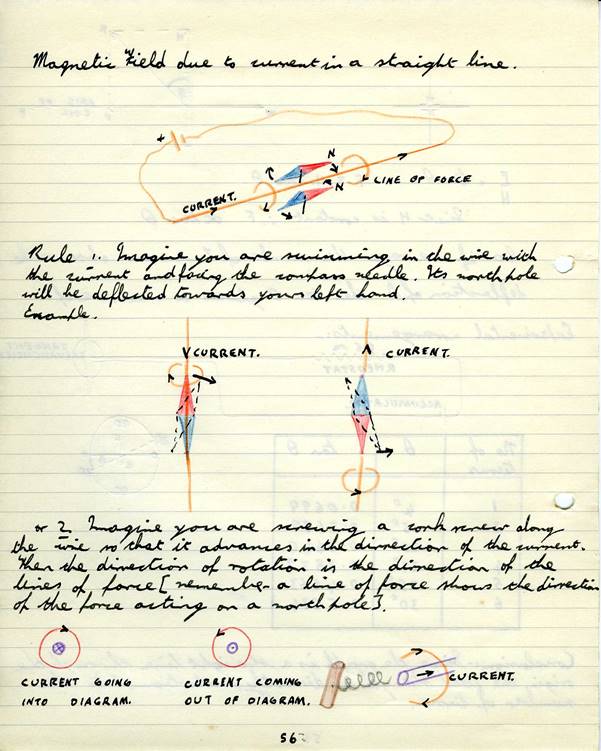 Magnetic Field due to current in a straight line.
+
N
N
LINE OF FORCE
CURRENT.
Rule 1. Imagine you are swimming in the wire with
the current and facing the compass needle. Its north pole
will be deflected towards yours left hand.
Example.
CURRENT.
CURRENT.
or 2 Imagine you are screwing a cork screw along
the wire so that it advances in the dirrection of the current.
Then the direction of rotation is the dirrection of the
lines of force [remember a line of force shows the dirrection
of the force acting on a north pole].
CURRENT GOING
INTO DIAGRAM.
CURRENT COMING
OUT OF DIAGRAM.
CURRENT.
56